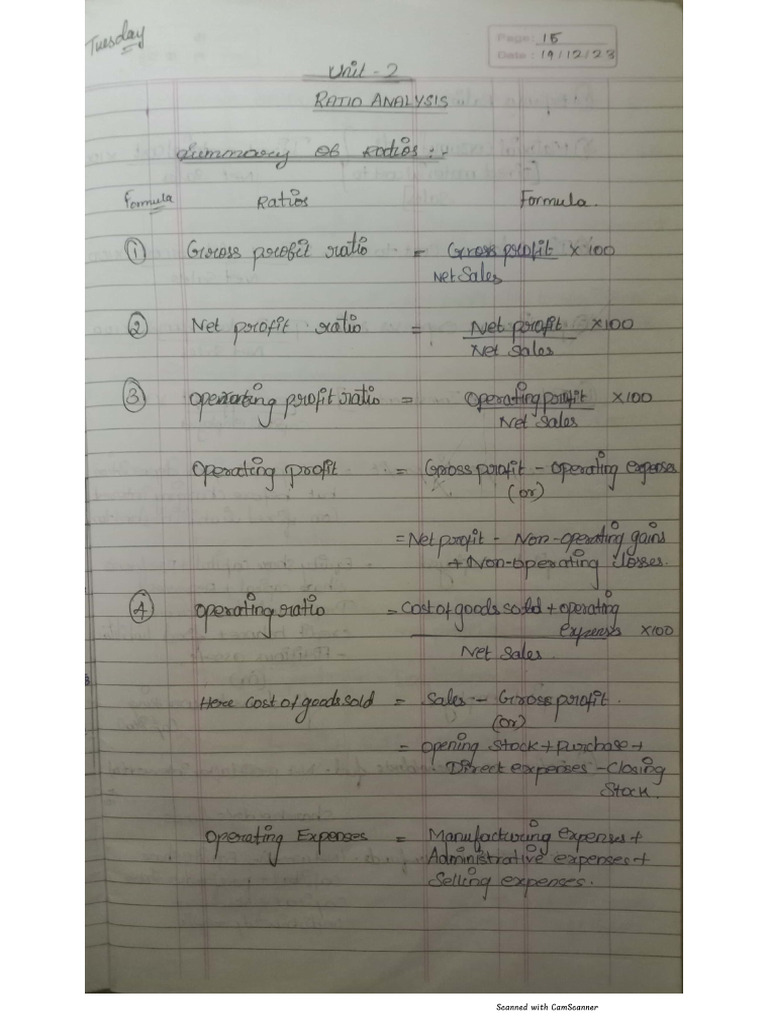 Tuesday
Page: 15
Date: 19/12/23
Unit - 2
RATIO ANALYSIS
Summary of ratios:-
Formula Ratios Formula.
① Gross profit ratio = Gross profit × 100
Net Sales
② Net profit ratio = Net profit ×100
Net Sales
③ Operating profit ratio = Operating profit ×100
Net Sales
Operating profit = Gross profit - operating expenses
(or)
= Net profit - Non-operating gains
+ Non-operating losses.
④ Operating ratio = Cost of goods sold + operating
expenses ×100
Net Sales.
Here cost of goods sold = Sales - Gross profit.
(or)
= Opening Stock + purchase +
Direct expenses - Closing
Stock.
Operating Expenses = Manufacturing expenses +
Administrative expenses +
Selling expenses.
Scanned with CamScanner